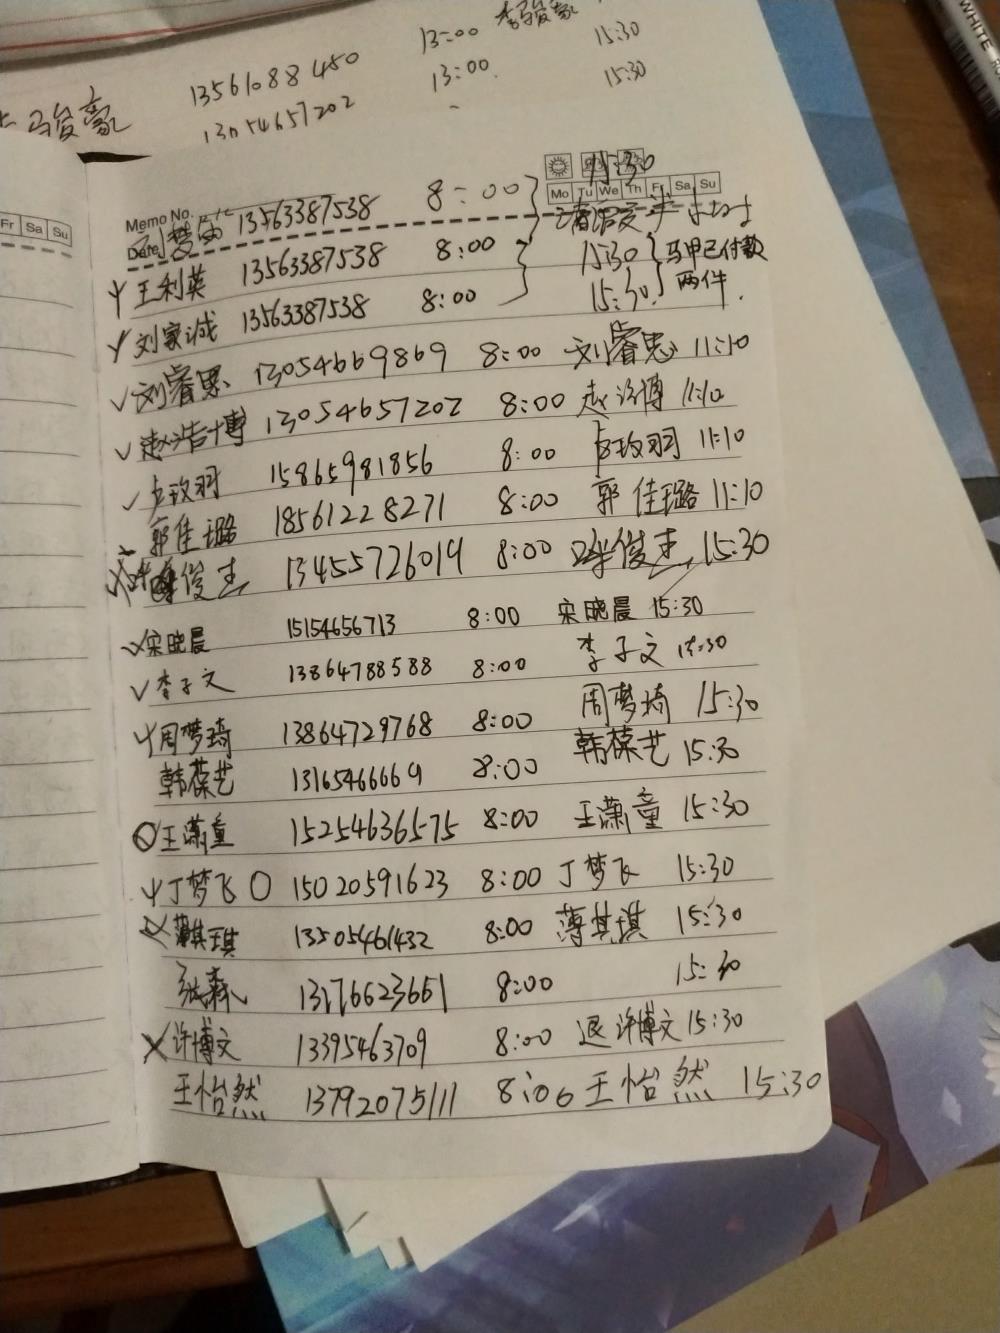 WHITE
13:00 李骏豪 15:30
13561088450 13:00 15:30
马骏豪 13054657202
Fr Sa Su
Memo No.
Date
Mo Tu We Th Fr Sa Su
刘梦宙 13563387538 8:00 15:30
王利英 13563387538 8:00 15:30 马甲已付款
刘家诚 13563387538 8:00 15:30 两件.
刘睿思 13054669869 8:00 刘睿思 11:10
赵浩博 13054657202 8:00 赵浩博 11:10
卢玫羽 15865981856 8:00 卢玫羽 11:10
郭佳璐 18561228271 8:00 郭佳璐 11:10
俊杰 13455726019 8:00 俊杰 15:30
宋晓晨 15154656713 8:00 宋晓晨 15:30
李子文 13864788588 8:00 李子文 15:30
周梦琦 13864729768 8:00 周梦琦 15:30
韩葆艺 13165466669 8:00 韩葆艺 15:30
王潇童 15254636575 8:00 王潇童 15:30
丁梦飞 15020591623 8:00 丁梦飞 15:30
薄其琪 13505461432 8:00 薄其琪 15:30
张森 13176623661 8:00 15:30
许博文 13395463709 8:00 退 许博文 15:30
王怡然 13792075111 8:00 王怡然 15:30